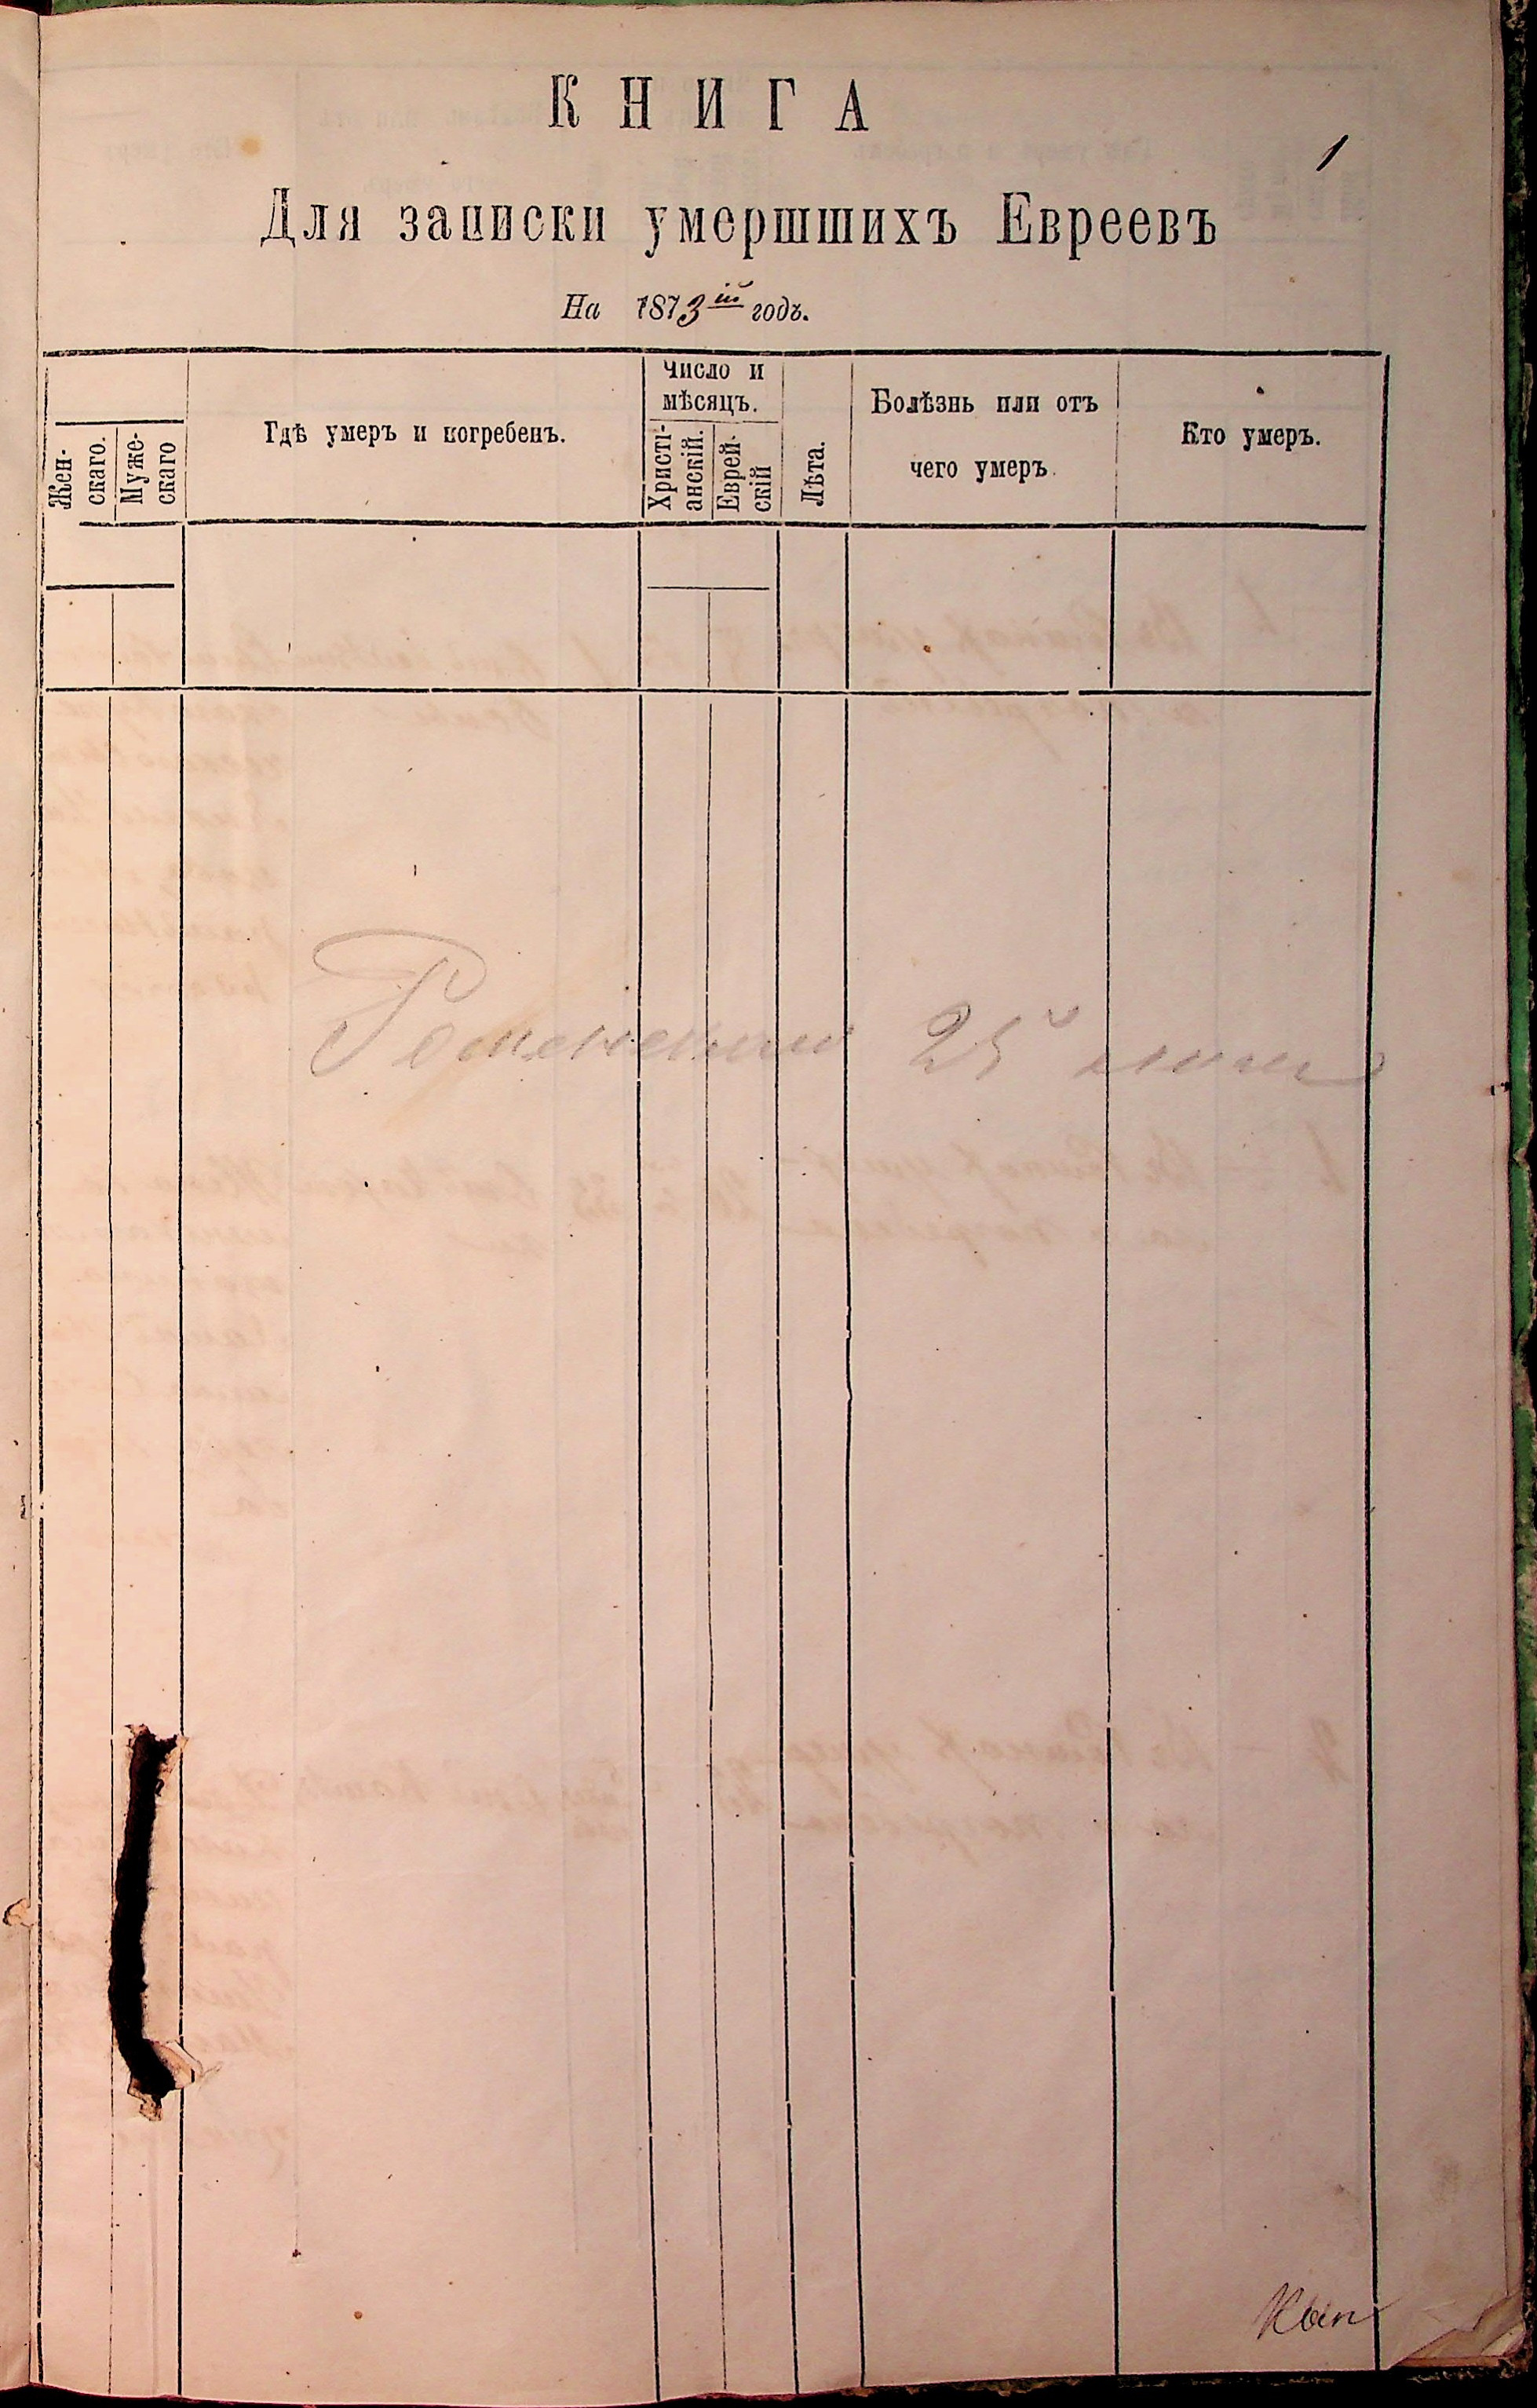 КНИГА
1
Для записки умершихъ Евреевъ
На 1873ій годъ.
Жен-
скаго.
Муже-
скаго
Гдѣ умеръ и погребенъ.
Число и
мѣсяцъ.
Христі-
анскій.
Еврей-
скій
Лѣта.
Болѣзнь или отъ
чего умеръ.
Кто умеръ.
25